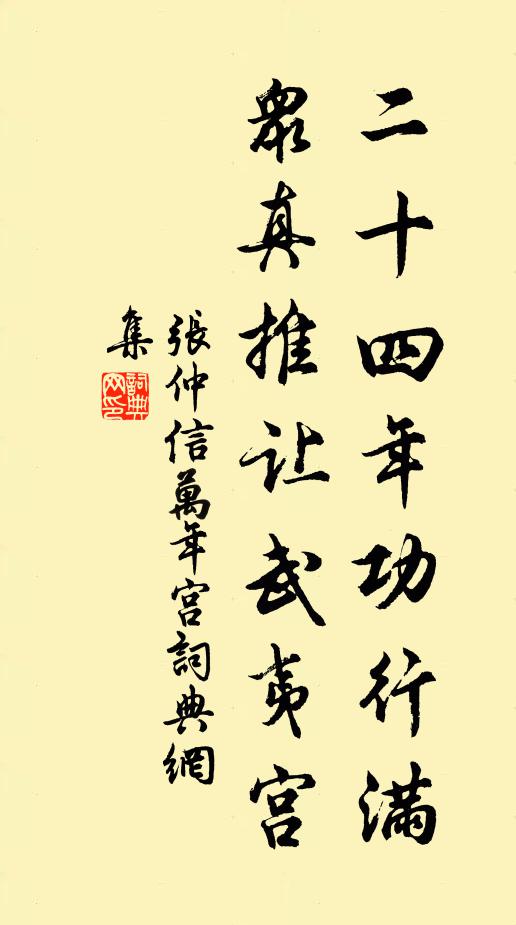 二十四年功行滿
眾真推让武夷宮
張仲信萬年宮詞典網
集
詞典
网印